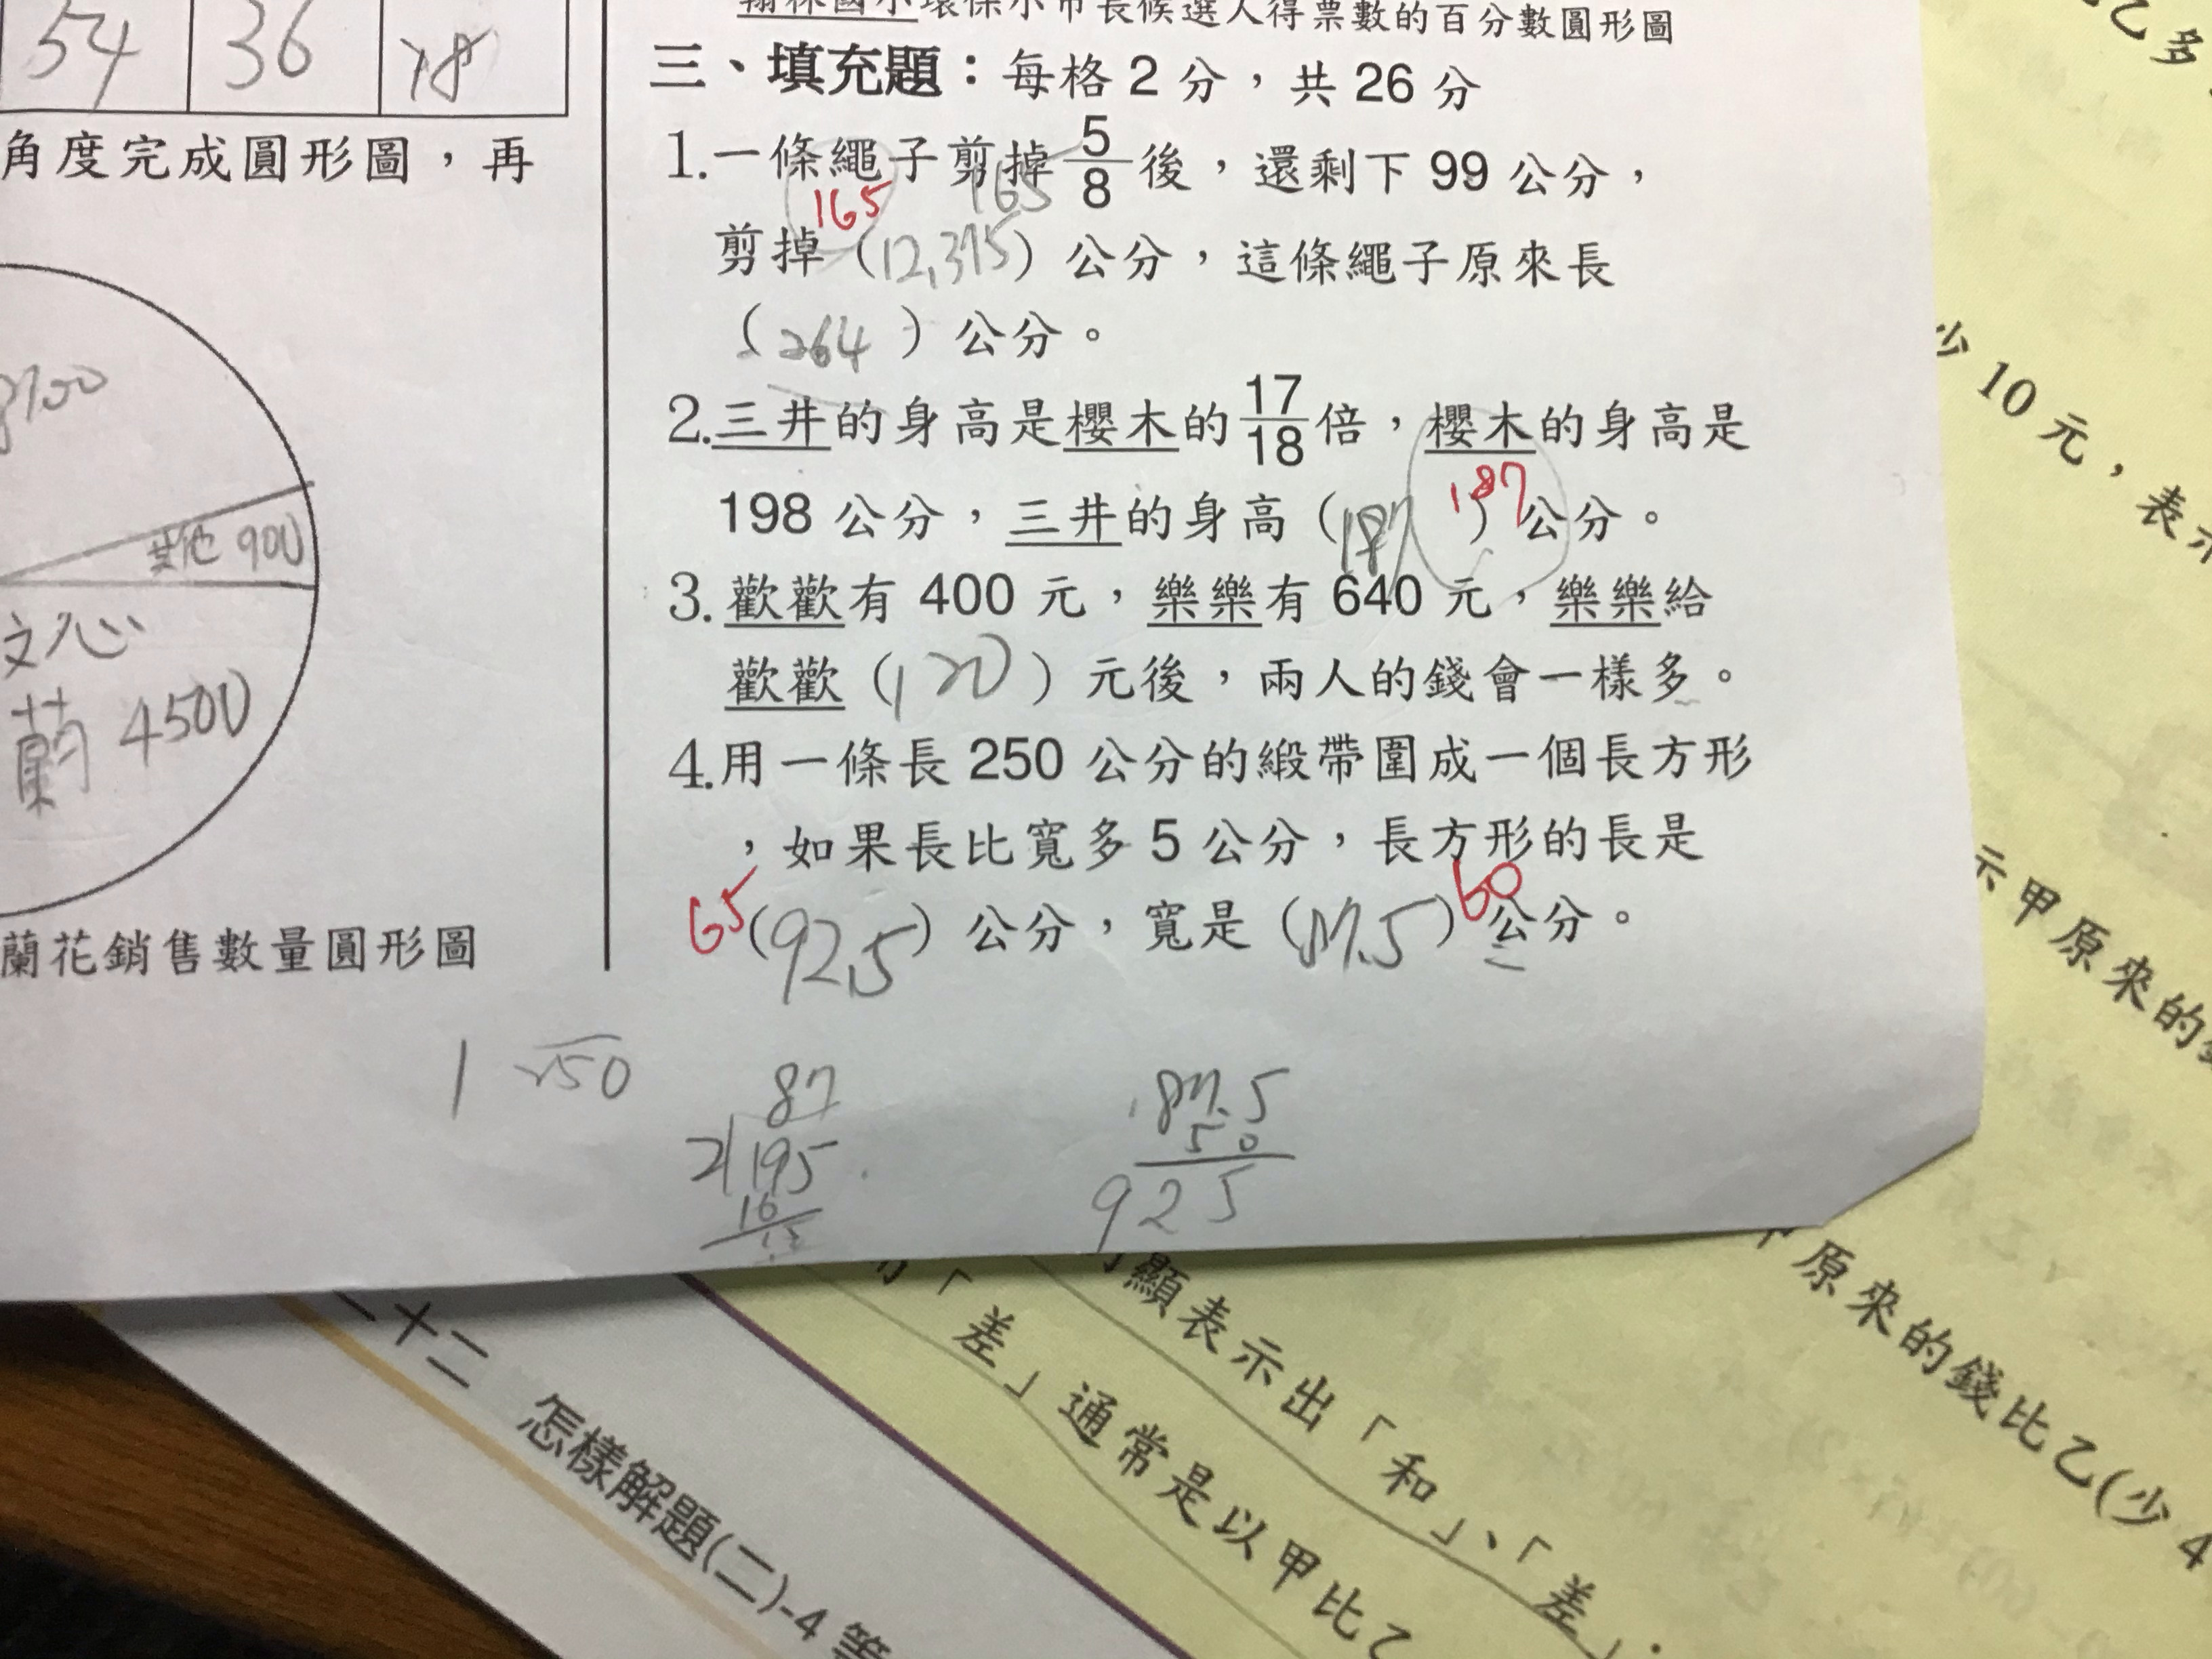 54 36 18
角度完成圓形圖，再
3700
其他 900
文心
蘭 4500
蘭花銷售數量圓形圖
翰林國小環保小市長候選人得票數的百分數圓形圖
三、填充題：每格 2 分，共 26 分
1. 一條繩子剪掉 5/8 後，還剩下 99 公分，
165 165
剪掉（12,375）公分，這條繩子原來長
（264）公分。
2. 三井的身高是櫻木的 17/18 倍，櫻木的身高是
187
198 公分，三井的身高（187）公分。
3. 歡歡有 400 元，樂樂有 640 元，樂樂給
歡歡（120）元後，兩人的錢會一樣多。
4. 用一條長 250 公分的緞帶圍成一個長方形
，如果長比寬多 5 公分，長方形的長是
65 60
（92.5）公分，寬是（87.5）公分。
1 250
87
2 195
16
87.5
50
925
乙多
少 10 元，表示
示甲原來的錢
甲原來的錢比乙(少 4
顯表示出「和」、「差」.
「差」通常是以甲比乙
二十二 怎樣解題(二)-4 等